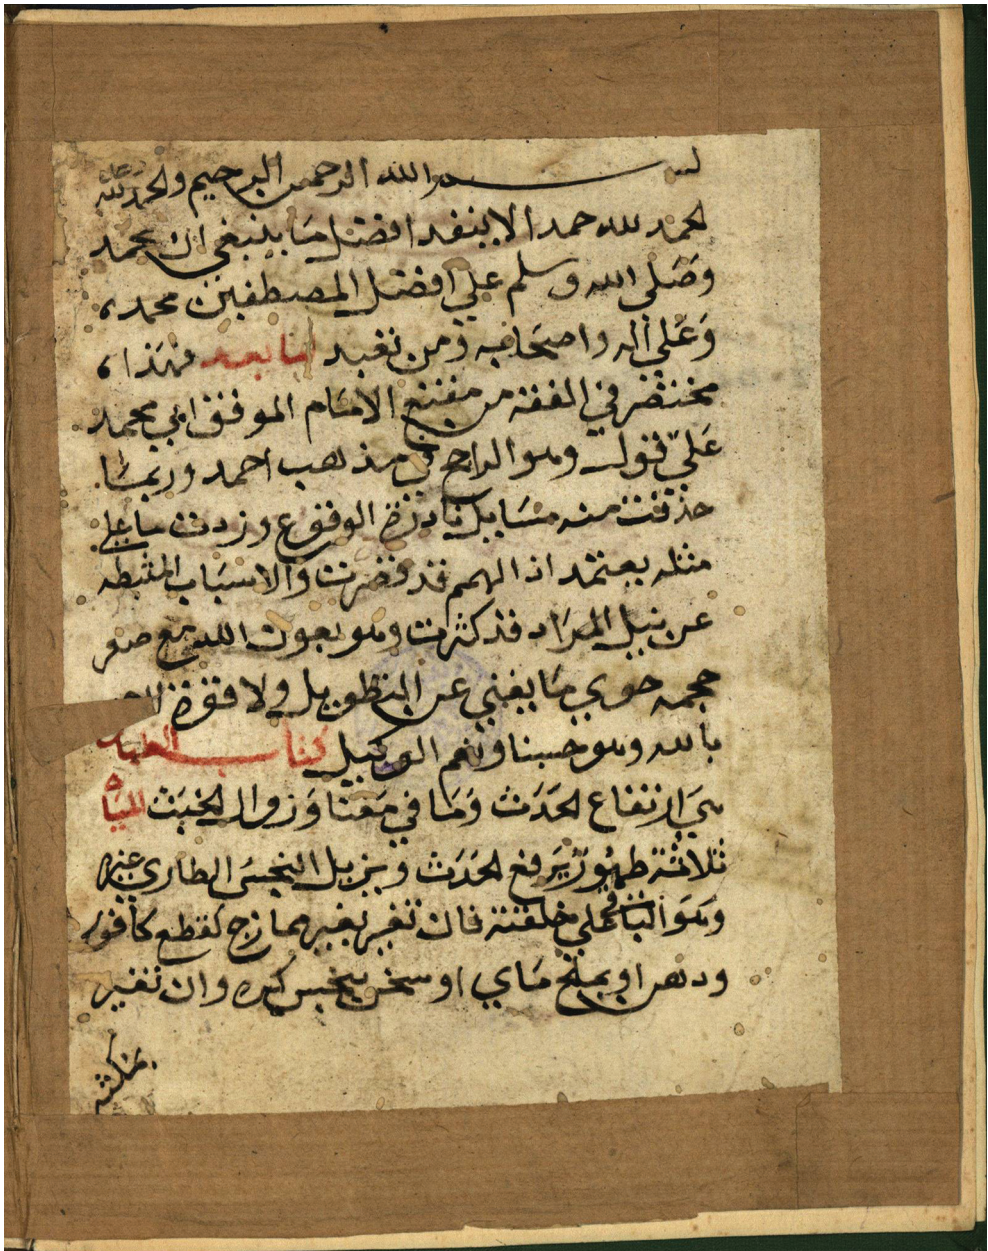 بسم الله الرحمن الرحيم والحمد لله
الحمد لله حمدا لا ينفد افضل ما ينبغي ان يحمد
وصلى الله وسلم علي افضل المصطفين محمد،
وَعَلي اله واصحَابه ومن تعبد اما بعد فهَذا،
مختصر في الفقه من مقنع الامَام الموفق ابي محمد
عَلي قول وهو الراجح في مذهب احمد وربمَا
حذفت منه مسَايل نادرة الوقوع وزدت ما علي
مثله يعتمد اذ الهمم قد قصرت والاسبَاب المثبطه
عن نيل المرَاد قد كثرت وهو بعون الله مع صغر
حجمه حوي مَا يغني عن التطويل ولا قوة الا
بالله وهو حسبنا ونعم الوكيل كتاب الطها
هيَ ارتفاع الحَدَث وَمَا في مَعنَا وَزوال الخبَث الميَاه
ثلاثة طهُورٌ يَرفع الحَدَث ويزيل النجسَ الطاري غيره
وَهوَ الباق علي خلقته فان تغير بغير ممازج كقطع كافور
ودهن او بملح مَاي او سخن بنجس كره وان تغير
بمكثه